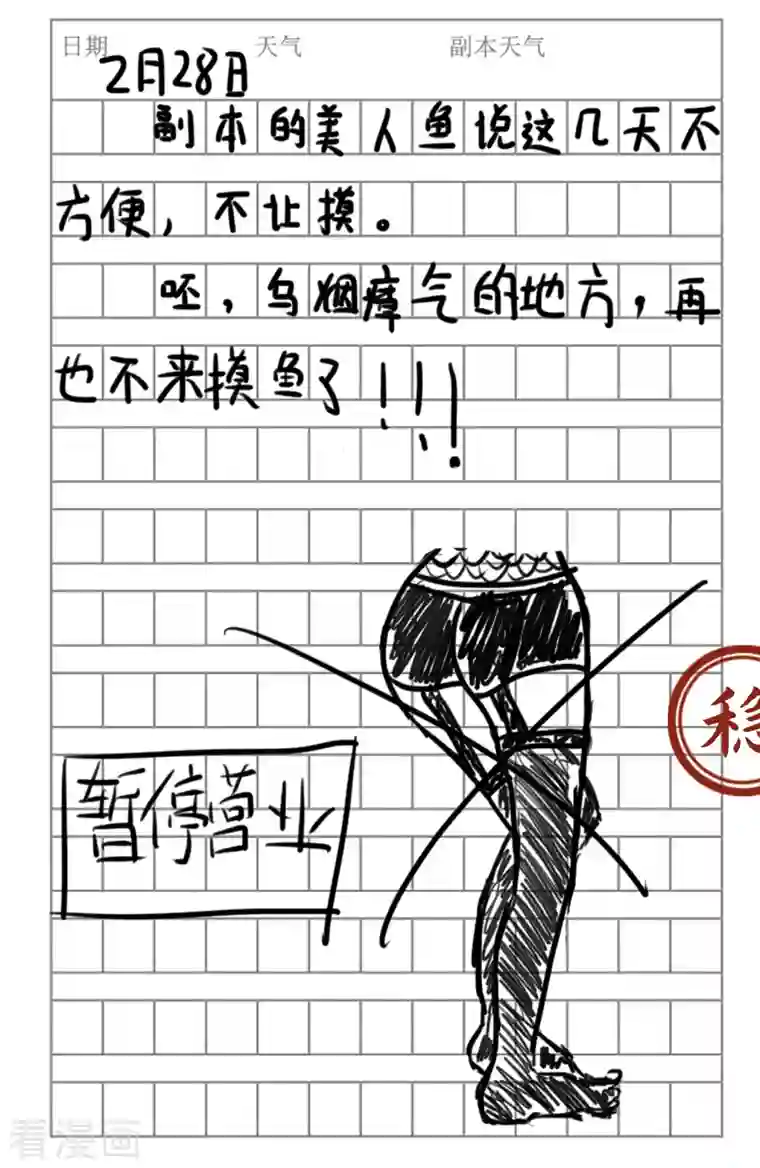 日期 天气 副本天气
2月28日
副本的美人鱼说这几天不
方便，不让摸。
呸，乌烟瘴气的地方，再
也不来摸鱼了！！！
稳
暂停营业
看漫画